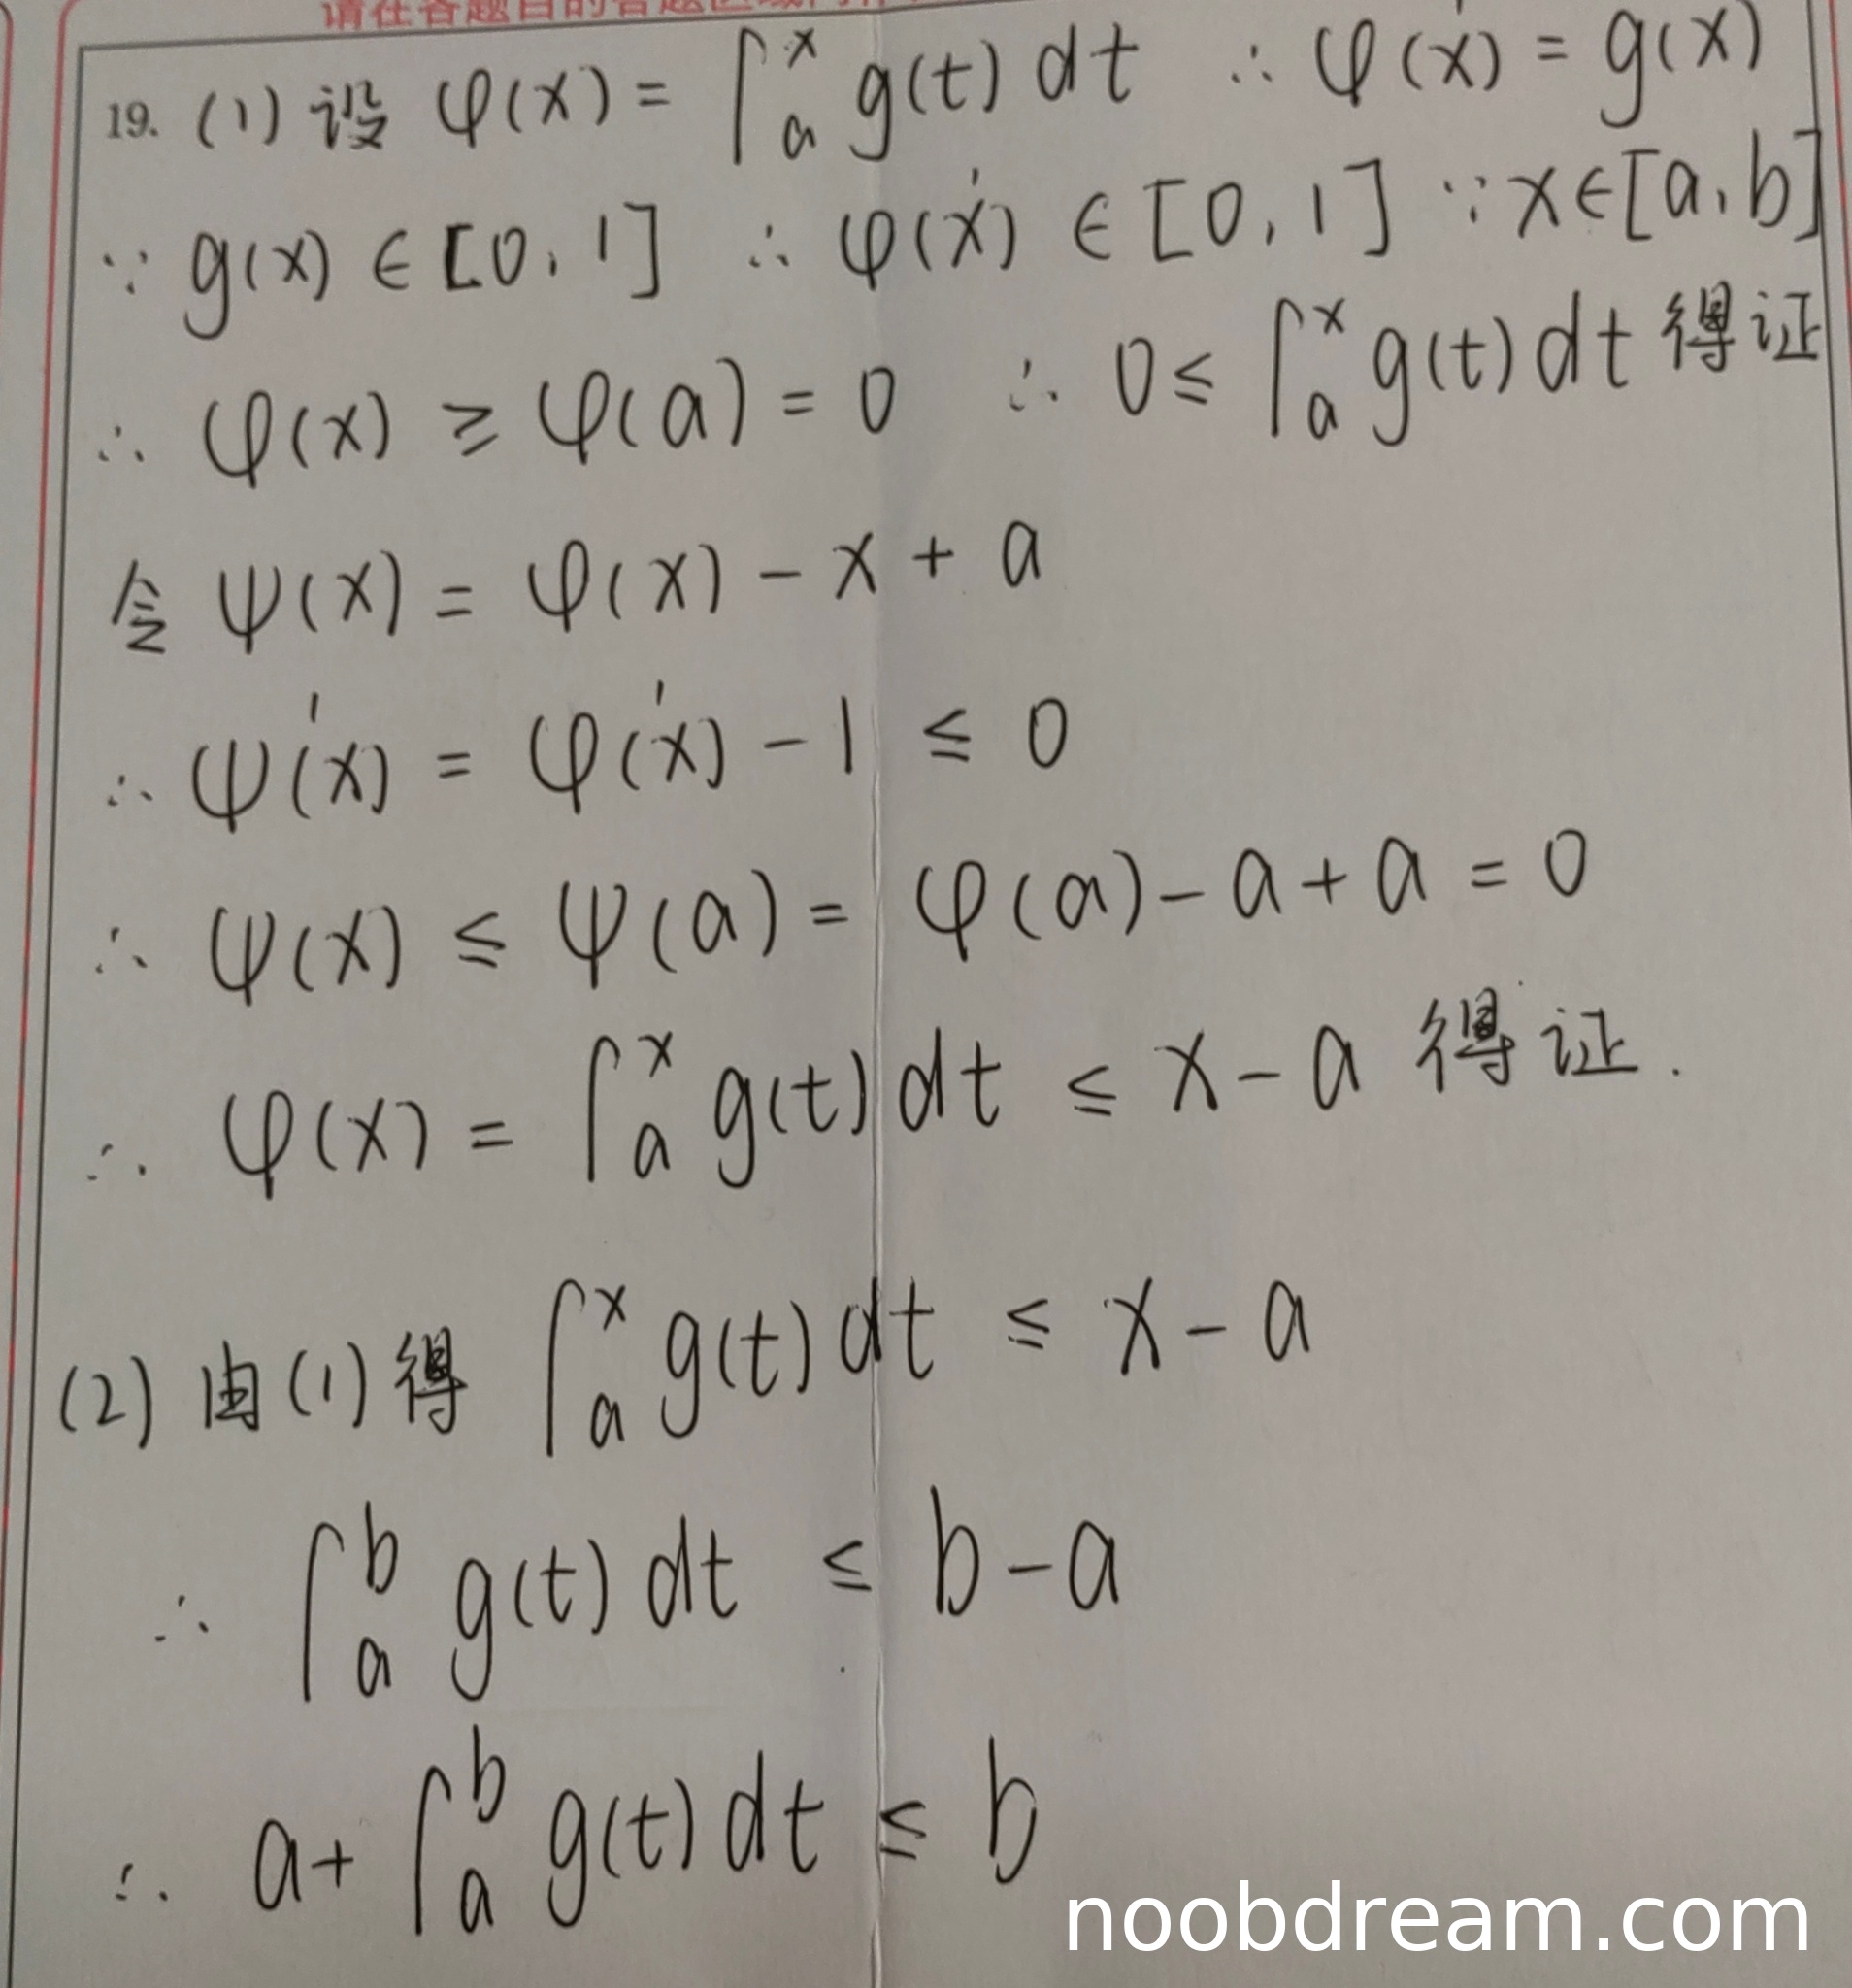 19. (1) 设 φ(x) = ∫ₐˣ g(t) dt ∴ φ'(x) = g(x)
∵ g(x) ∈ [0, 1] ∴ φ'(x) ∈ [0, 1] ∵ x∈[a, b]
∴ φ(x) ≥ φ(a) = 0 ∴ 0 ≤ ∫ₐˣ g(t) dt 得证
令 ψ(x) = φ(x) - x + a
∴ ψ'(x) = φ'(x) - 1 ≤ 0
∴ ψ(x) ≤ ψ(a) = φ(a) - a + a = 0
∴ φ(x) = ∫ₐˣ g(t) dt ≤ x - a 得证.
(2) 由(1)得 ∫ₐˣ g(t) dt ≤ x - a
∴ ∫ₐᵇ g(t) dt ≤ b - a
∴ a + ∫ₐᵇ g(t) dt ≤ b
noobdream.com